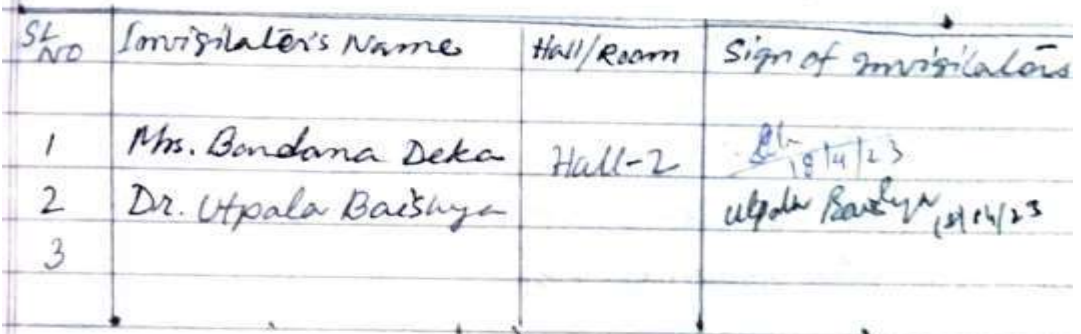 SL NO Invigilater's Name Hall/Room Sign of Invigilators
1 Mrs. Bandana Deka Hall-2 18/4/23
2 Dr. Utpala Baishya Utpala Baishya 18/04/23
3